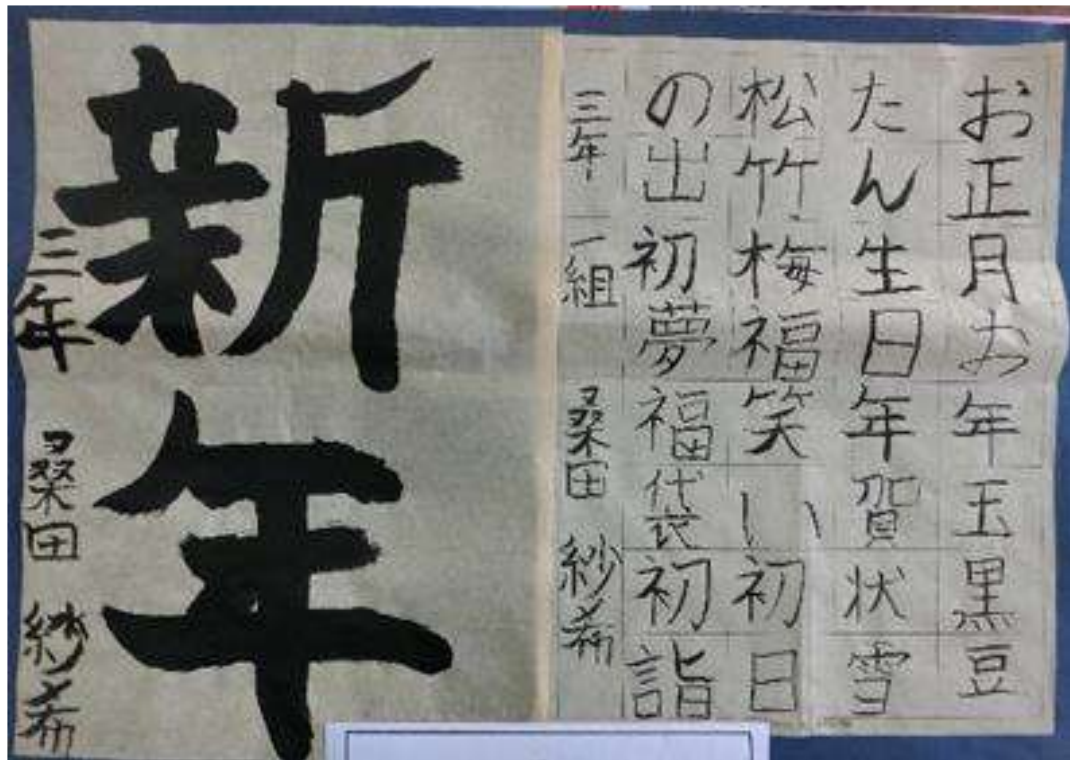 お正月お年玉黒豆
たん生日年賀状雪
松竹梅福笑い初日
の出初夢福袋初詣
三年一組 桑田 紗希
新年
三年 桑田 紗希